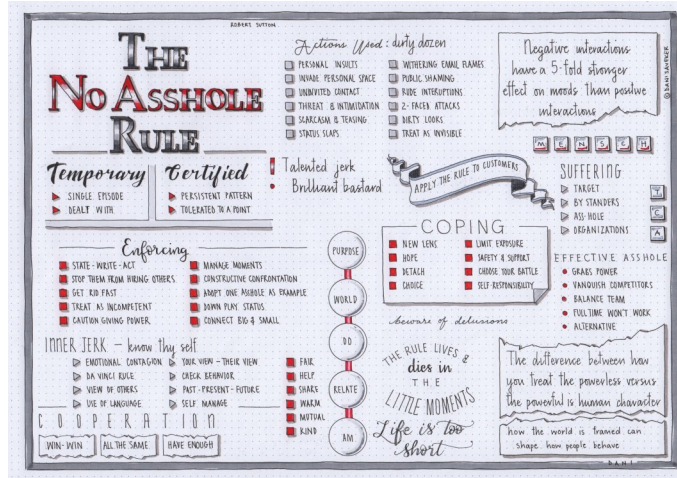 ROBERT SUTTON
THE
NO ASSHOLE
RULE
Actions Used: dirty dozen
PERSONAL INSULTS
INVADE PERSONAL SPACE
UNINVITED CONTACT
THREAT & INTIMIDATION
SCARCASM & TEASING
STATUS SLAPS
WITHERING EMAIL FLAMES
PUBLIC SHAMING
RUDE INTERUPTIONS
2-FACED ATTACKS
DIRTY LOOKS
TREAT AS INVISIBLE
Negative interactions
have a 5-fold stronger
effect on moods than positive
interactions
M E N S C H
Temporary
SINGLE EPISODE
DEALT WITH
Certified
PERSISTENT PATTERN
TOLERATED TO A POINT
Talented jerk
Brilliant bastard
APPLY THE RULE TO CUSTOMERS
SUFFERING
TARGET
BY STANDERS
ASS-HOLE
ORGANIZATIONS
T
C
A
Enforcing
STATE-WRITE-ACT
STOP THEM FROM HIRING OTHERS
GET RID FAST
TREAT AS INCOMPETENT
CAUTION GIVING POWER
MANAGE MOMENTS
CONSTRUCTIVE CONFRONTATION
ADOPT ONE ASSHOLE AS EXAMPLE
DOWN PLAY STATUS
CONNECT BIG & SMALL
PURPOSE
WORLD
DO
RELATE
AM
COPING
NEW LENS
HOPE
DETACH
CHOICE
LIMIT EXPOSURE
SAFETY & SUPPORT
CHOOSE YOUR BATTLE
SELF-RESPONSIBILITY
beware of delusions
EFFECTIVE ASSHOLE
GRABS POWER
VANQUISH COMPETITORS
BALANCE TEAM
FULL TIME WON'T WORK
ALTERNATIVE
INNER JERK – know thy self
EMOTIONAL CONTAGION
DA VINCI RULE
VIEW OF OTHERS
USE OF LANGUAGE
YOUR VIEW - THEIR VIEW
CHECK BEHAVIOR
PAST-PRESENT-FUTURE
SELF MANAGE
FAIR
HELP
SHARE
WARM
MUTUAL
KIND
THE RULE LIVES &
dies in
THE
LITTLE MOMENTS
Life is too
short
The difference between how
you treat the powerless versus
the powerful is human character
COOPERATION
WIN-WIN
ALL THE SAME
HAVE ENOUGH
how the world is framed can
shape how people behave
DANI